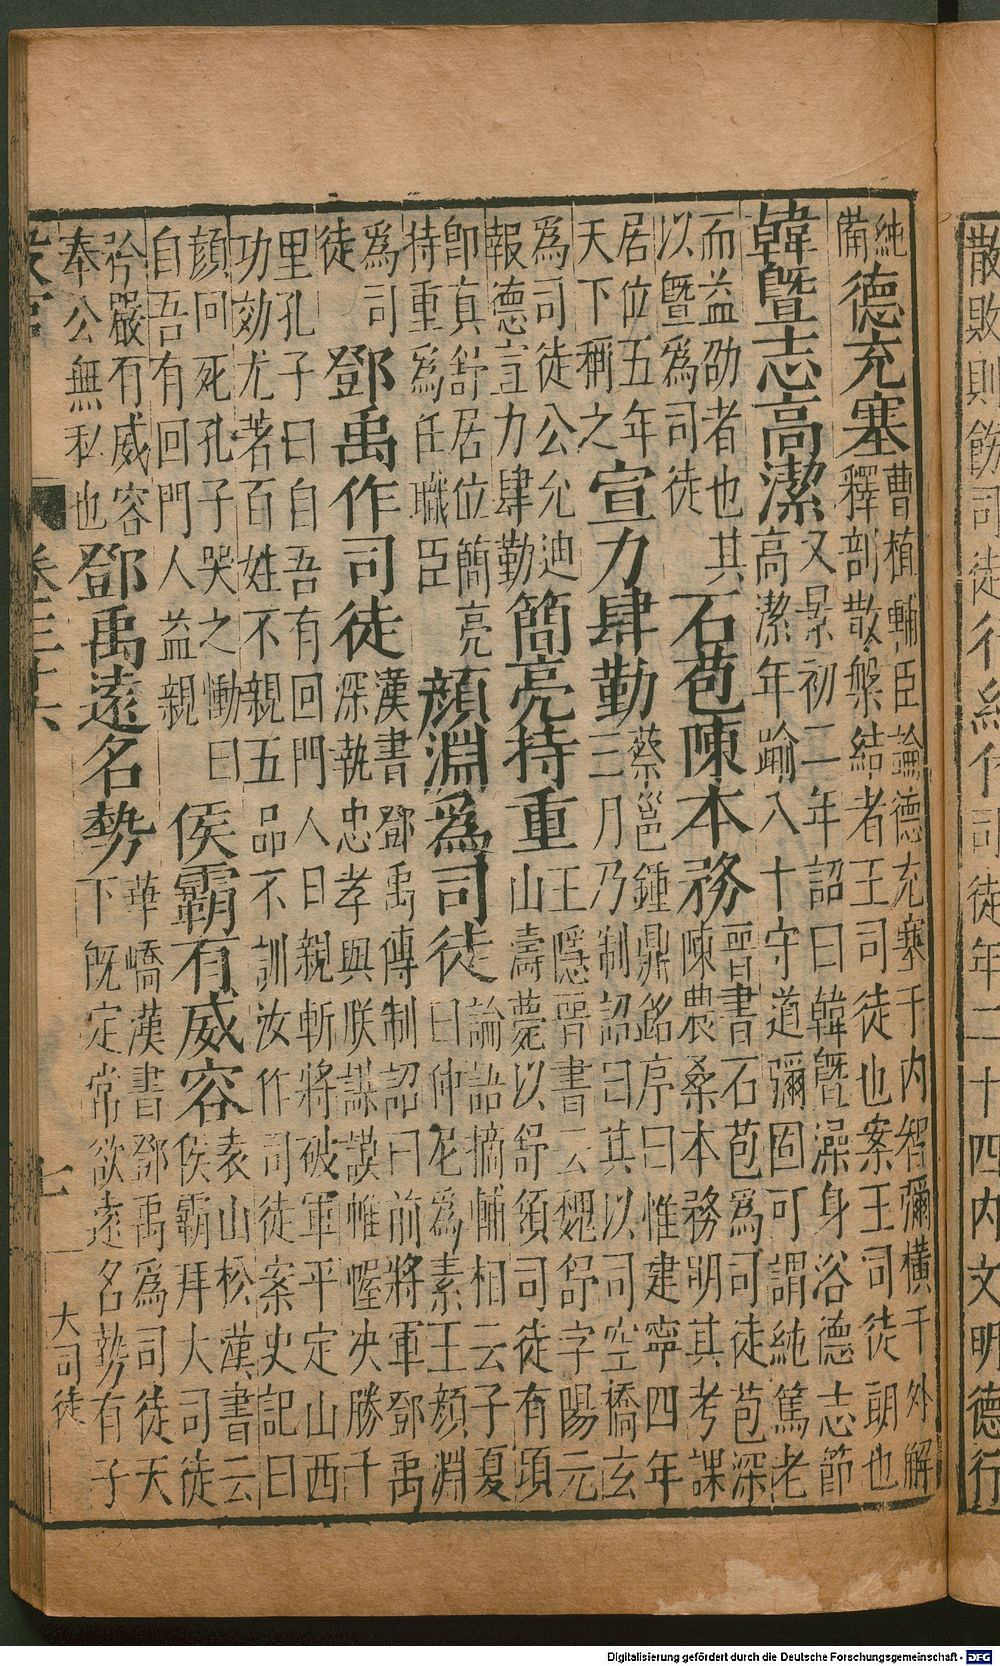 司徒年二十四内文明德行
純
備
德充塞
曹植輔臣論德充塞于内智彌橫于外解
釋剖散槃結者王司徒也案王司徒朗也
韓曁志高潔
又景初二年詔曰韓曁澡身浴德志節
高潔年踰八十守道彌固可謂純篤老
而益劭者也其
以曁爲司徒
石苞陳本務
晋書石苞爲司徒苞深
陳農桑本務明其考課
居位五年
天下稱之
宣力肆勤
蔡邕鍾鼎銘序曰惟建寧四年
三月乃制詔曰其以司空橋玄
爲司徒公允迪
報德宣力肆勤
簡亮持重
王隱晋書云魏舒字陽元
山濤薨以舒須司徒有頃
卽真舒居位簡亮
持重爲任職臣
顔淵爲司徒
論語摘輔相云子夏
曰仲尼爲素王顔淵
爲司
徒
鄧禹作司徒
漢書鄧禹傳制詔曰前將軍鄧禹
深執忠孝與朕謀謨帷幄决勝千
里孔子曰自吾有回門人日親斬將破軍平定山西
功効尤著百姓不親五品不訓汝作司徒案史記曰
顔回死孔子哭之慟曰
自吾有回門人益親
侯霸有威容
袁山松漢書云
侯霸拜大司徒
矜嚴有威容
奉公無私也
鄧禹遠名勢
華嶠漢書鄧禹爲司徒天
下旣定常欲遠名勢有子
大司徒
Digitalisierung gefördert durch die Deutsche Forschungsgemeinschaft - DFG